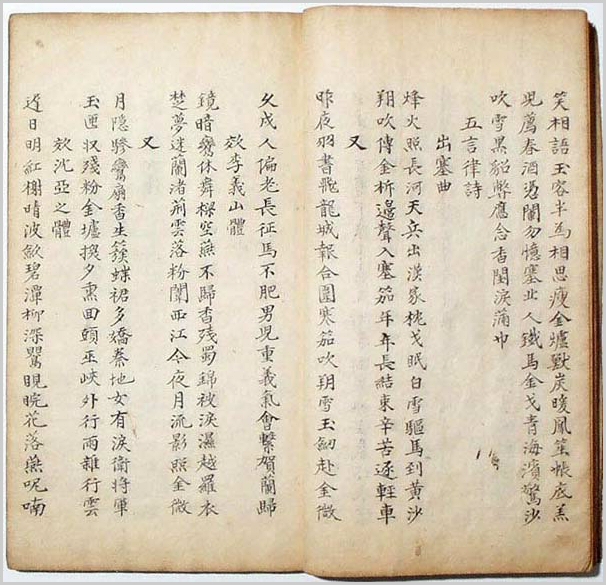 笑相語玉容半為相思瘦金爐獸炭暖鳳笙帳底羔
兒薦春酒憑闌勿憶塞北人鐵馬金戈青海濱驚沙
吹雪黑貂弊應念香閨淚滿巾
五言律詩
出塞曲
烽火照長河天兵出漢家枕戈眠白雪驅馬到黃沙
朔吹傳金柝邊聲入塞笳年年長結束辛苦逐輕車
又
昨夜羽書飛龍城報合圍寒笳吹朔雪玉劒赴金微
久戍人偏老長征馬不肥男兒重義氣會繫賀蘭歸
效李義山體
鏡暗鸞休舞樑空燕不歸香殘蜀錦被淚濕越羅衣
楚夢迷蘭渚荊雲落粉闈西江今夜月流影照金微
又
月隱驂鸞扇香生簇蝶裙多嬌秦地女有淚衛將軍
玉匣収殘粉金爐換夕熏回頭巫峽外行雨雜行雲
效沈亞之體
遅日明紅榭晴波歛碧潭柳深鸎睍睆花落燕呢喃